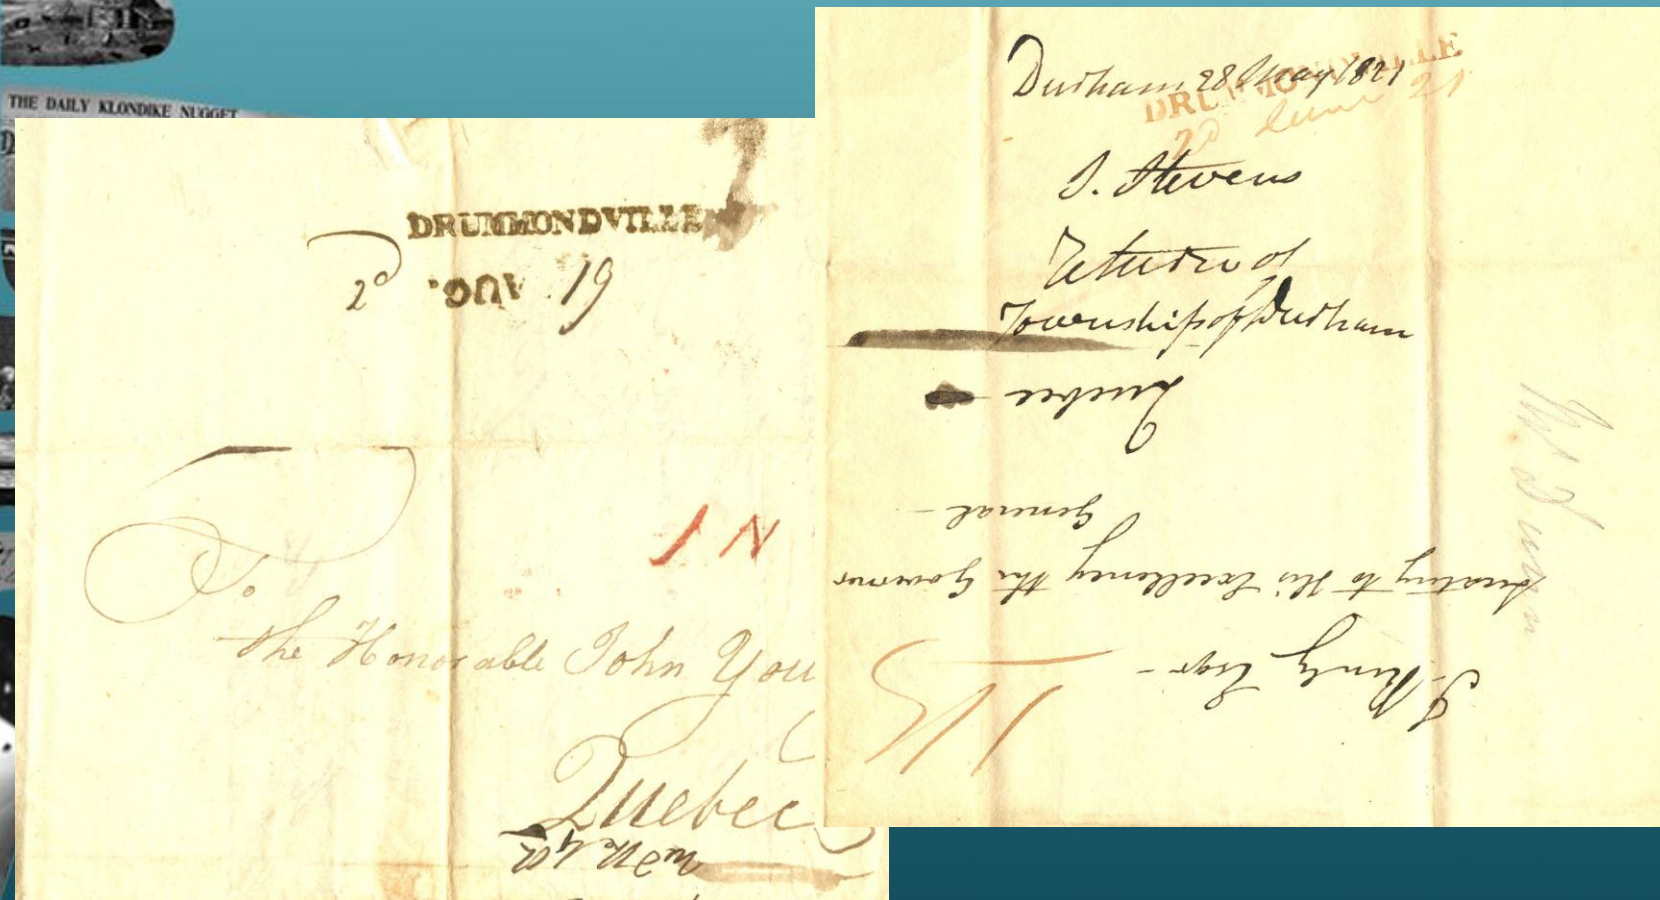 THE DAILY KLONDIKE NUGGET
DRUMMONDVILLE
2d AUG. 19
To
the Honorable John You
Quebec
Durham 28 May 1821
DRUMMONDVILLE
2d June 21
S. Stevens
Return of
Township of Durham
Quebec
General -
Secretary to His Excellency the Governor
Esqr -